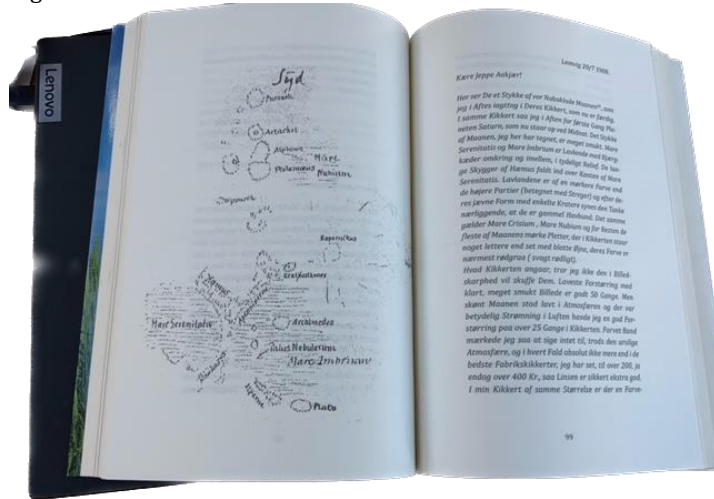 Lenovo
Syd
Purbach
Arzachel
Alphons
Ptolemæus
Mare
Nubium
Kopernikus
Eratosthenes
Apenninerne
Hæmus
Mare Serenitatis
Archimedes
Palus Nebularum
Mare Imbrium
Kaukasus
Alperne
Plato
Lemvig 20/7 1908.
Kære Jeppe Aakjær!
Her ser De et Stykke af vor Naboklode Maanen", som
jeg i Aftes iagttog i Deres Kikkert, som nu er færdig.
I samme Kikkert saa jeg i Aften for første Gang Pla-
neten Saturn, som nu staar op ved Midnat. Det Stykke
af Maanen, jeg her har tegnet, er meget smukt. Mare
Serenitatis og Mare Imbrium er Lavlande med Bjerg-
kæder omkring og imellem, i tydeligt Relief. De lan-
ge Skygger af Hæmus faldt ind over Kanten af Mare
Serenitatis. Lavlandene er af en mørkere Farve end
de højere Partier (betegnet med Streger) og efter de-
res jævne Form med enkelte Kratere synes den Tanke
nærliggende, at de er gammel Havbund. Det samme
gælder Mare Crisium, Mare Nubium og for Resten de
fleste af Maanens mørke Pletter, der i Kikkerten staar
noget lettere end set med blotte Øjne, deres Farve er
nærmest rødgraa (svagt rødligt).
Hvad Kikkerten angaar, tror jeg ikke den i Billed-
skarphed vil skuffe Dem. Laveste Forstørring med
klart, meget smukt Billede er godt 50 Gange. Men
skønt Maanen stod lavt i Atmosfæren og der var
betydelig Strømning i Luften havde jeg en god For-
størring paa over 25 Gange i Kikkerten. Farvet Rand
mærkede jeg saa at sige intet til, trods den urolige
Atmosfære, og i hvert Fald absolut ikke mere end i de
bedste Fabrikskikkerter, jeg har set, til over 200, ja
endog over 400 Kr., saa Linsen er sikkert ekstra god.
I min Kikkert af samme Størrelse er der en Farve-
99